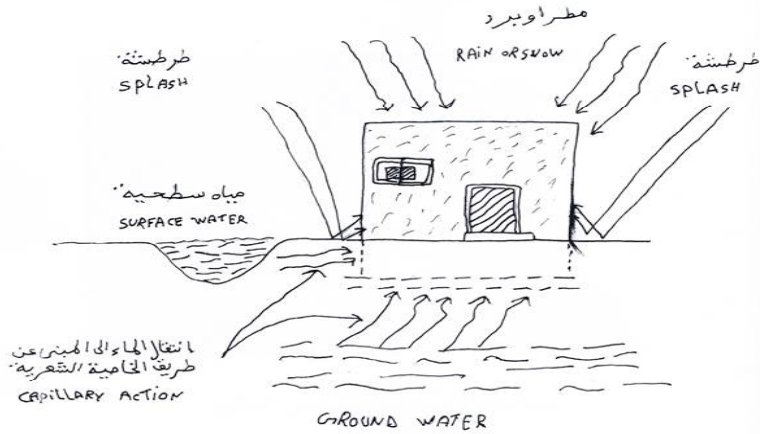 مطر او برد
RAIN OR SNOW
طرطشة
SPLASH
طرطشة
SPLASH
مياه سطحية
SURFACE WATER
انتقال الماء الى المبنى عن
طريق الخاصية الشعرية
CAPILLARY ACTION
GROUND WATER